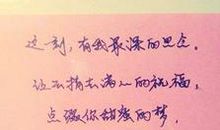 这一刻，有我最深的思念。
让云捎去满心的祝福，
点缀你甜蜜的梦，